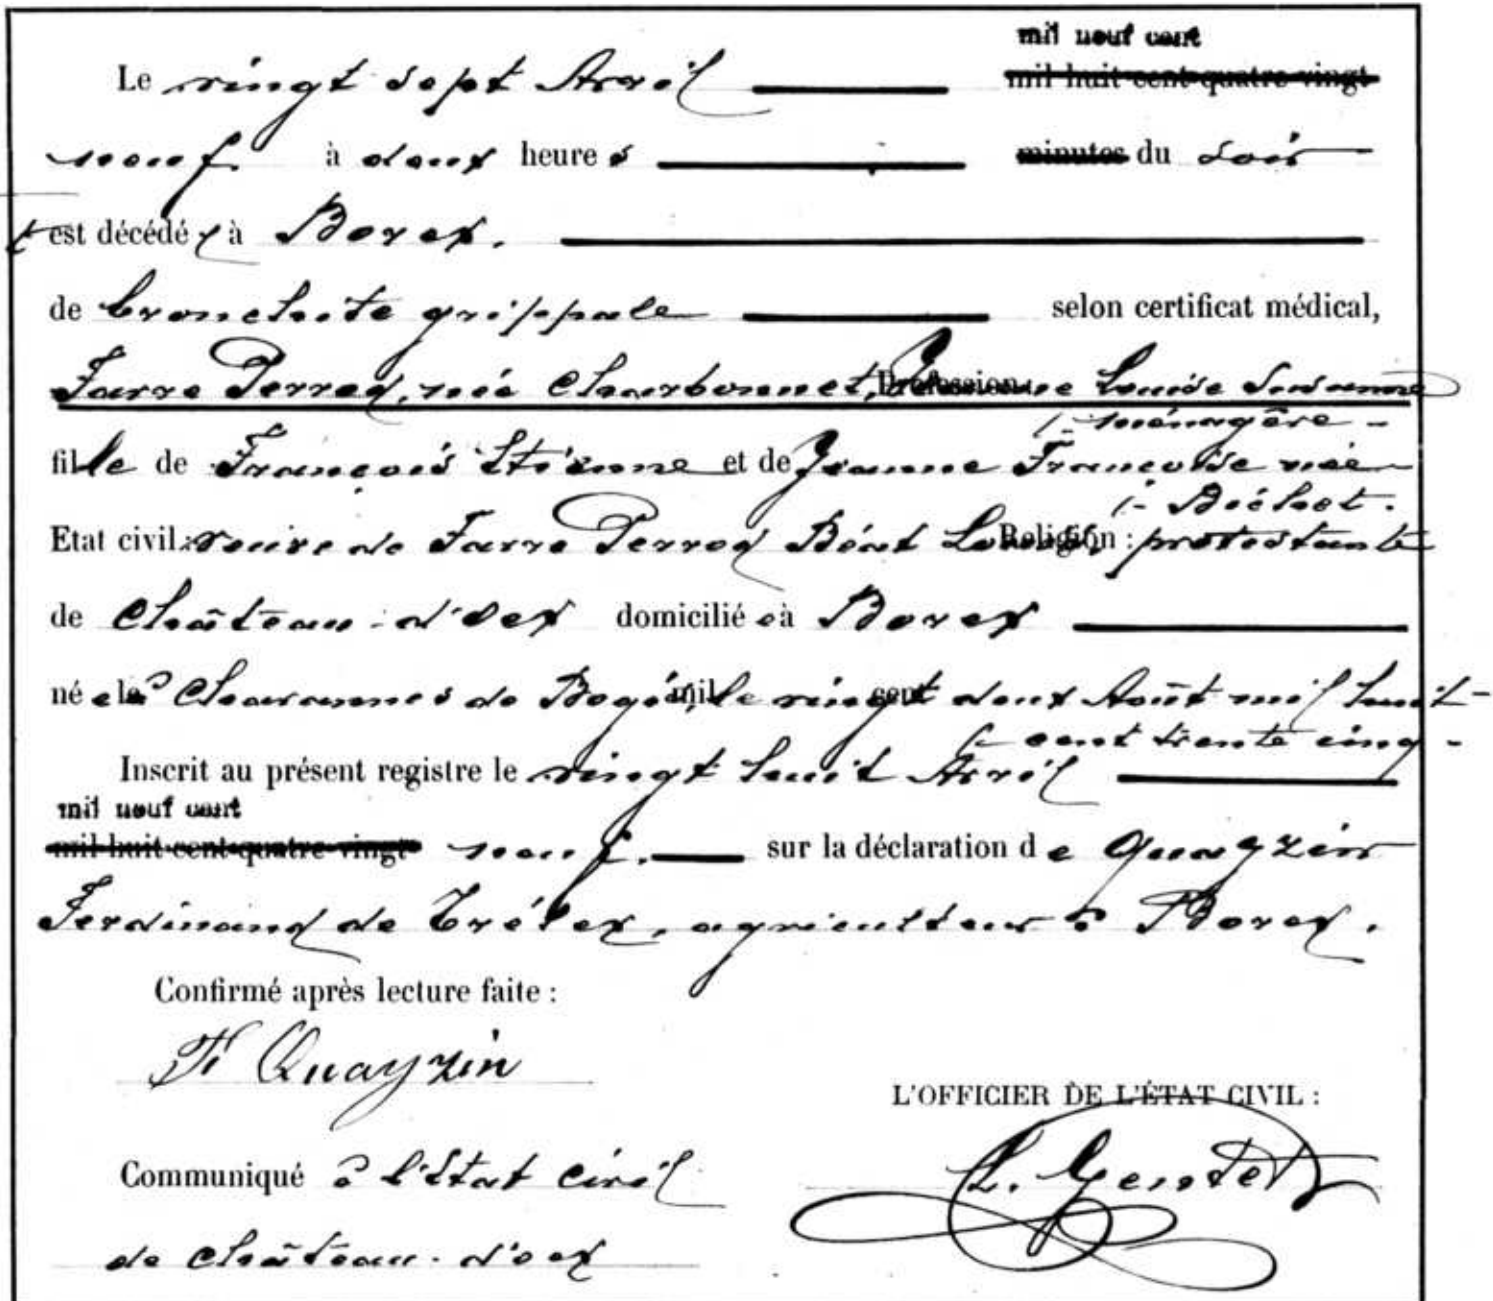 mil neuf cent
Le vingt sept Avril mil huit cent quatre-vingt
neuf. à deux heures minutes du soir
est décédée à Borex.
de bronchite grippale selon certificat médical,
Favre Perrod, née Charbonnet, Profession: Louise Susanne
ménagère -
fille de François Etienne et de Jeanne Françoise née
Béchet.
Etat civil: veuve de Favre Perrod Béat Louis. Religion : protestante
de Château-d'Oex domiciliée à Borex
née le à Chavannes de Bogis, mil le vingt cent deux Août mil huit-
cent trente cinq -
Inscrit au présent registre le vingt huit Avril
mil neuf cent
mil huit cent quatre-vingt neuf. sur la déclaration de Quayzin
Ferdinand de Trélex, agriculteur à Borex.
Confirmé après lecture faite :
Fd Quayzin
L'OFFICIER DE L'ÉTAT CIVIL :
Communiqué à l'Etat civil L. Gendet
de Château-d'oex